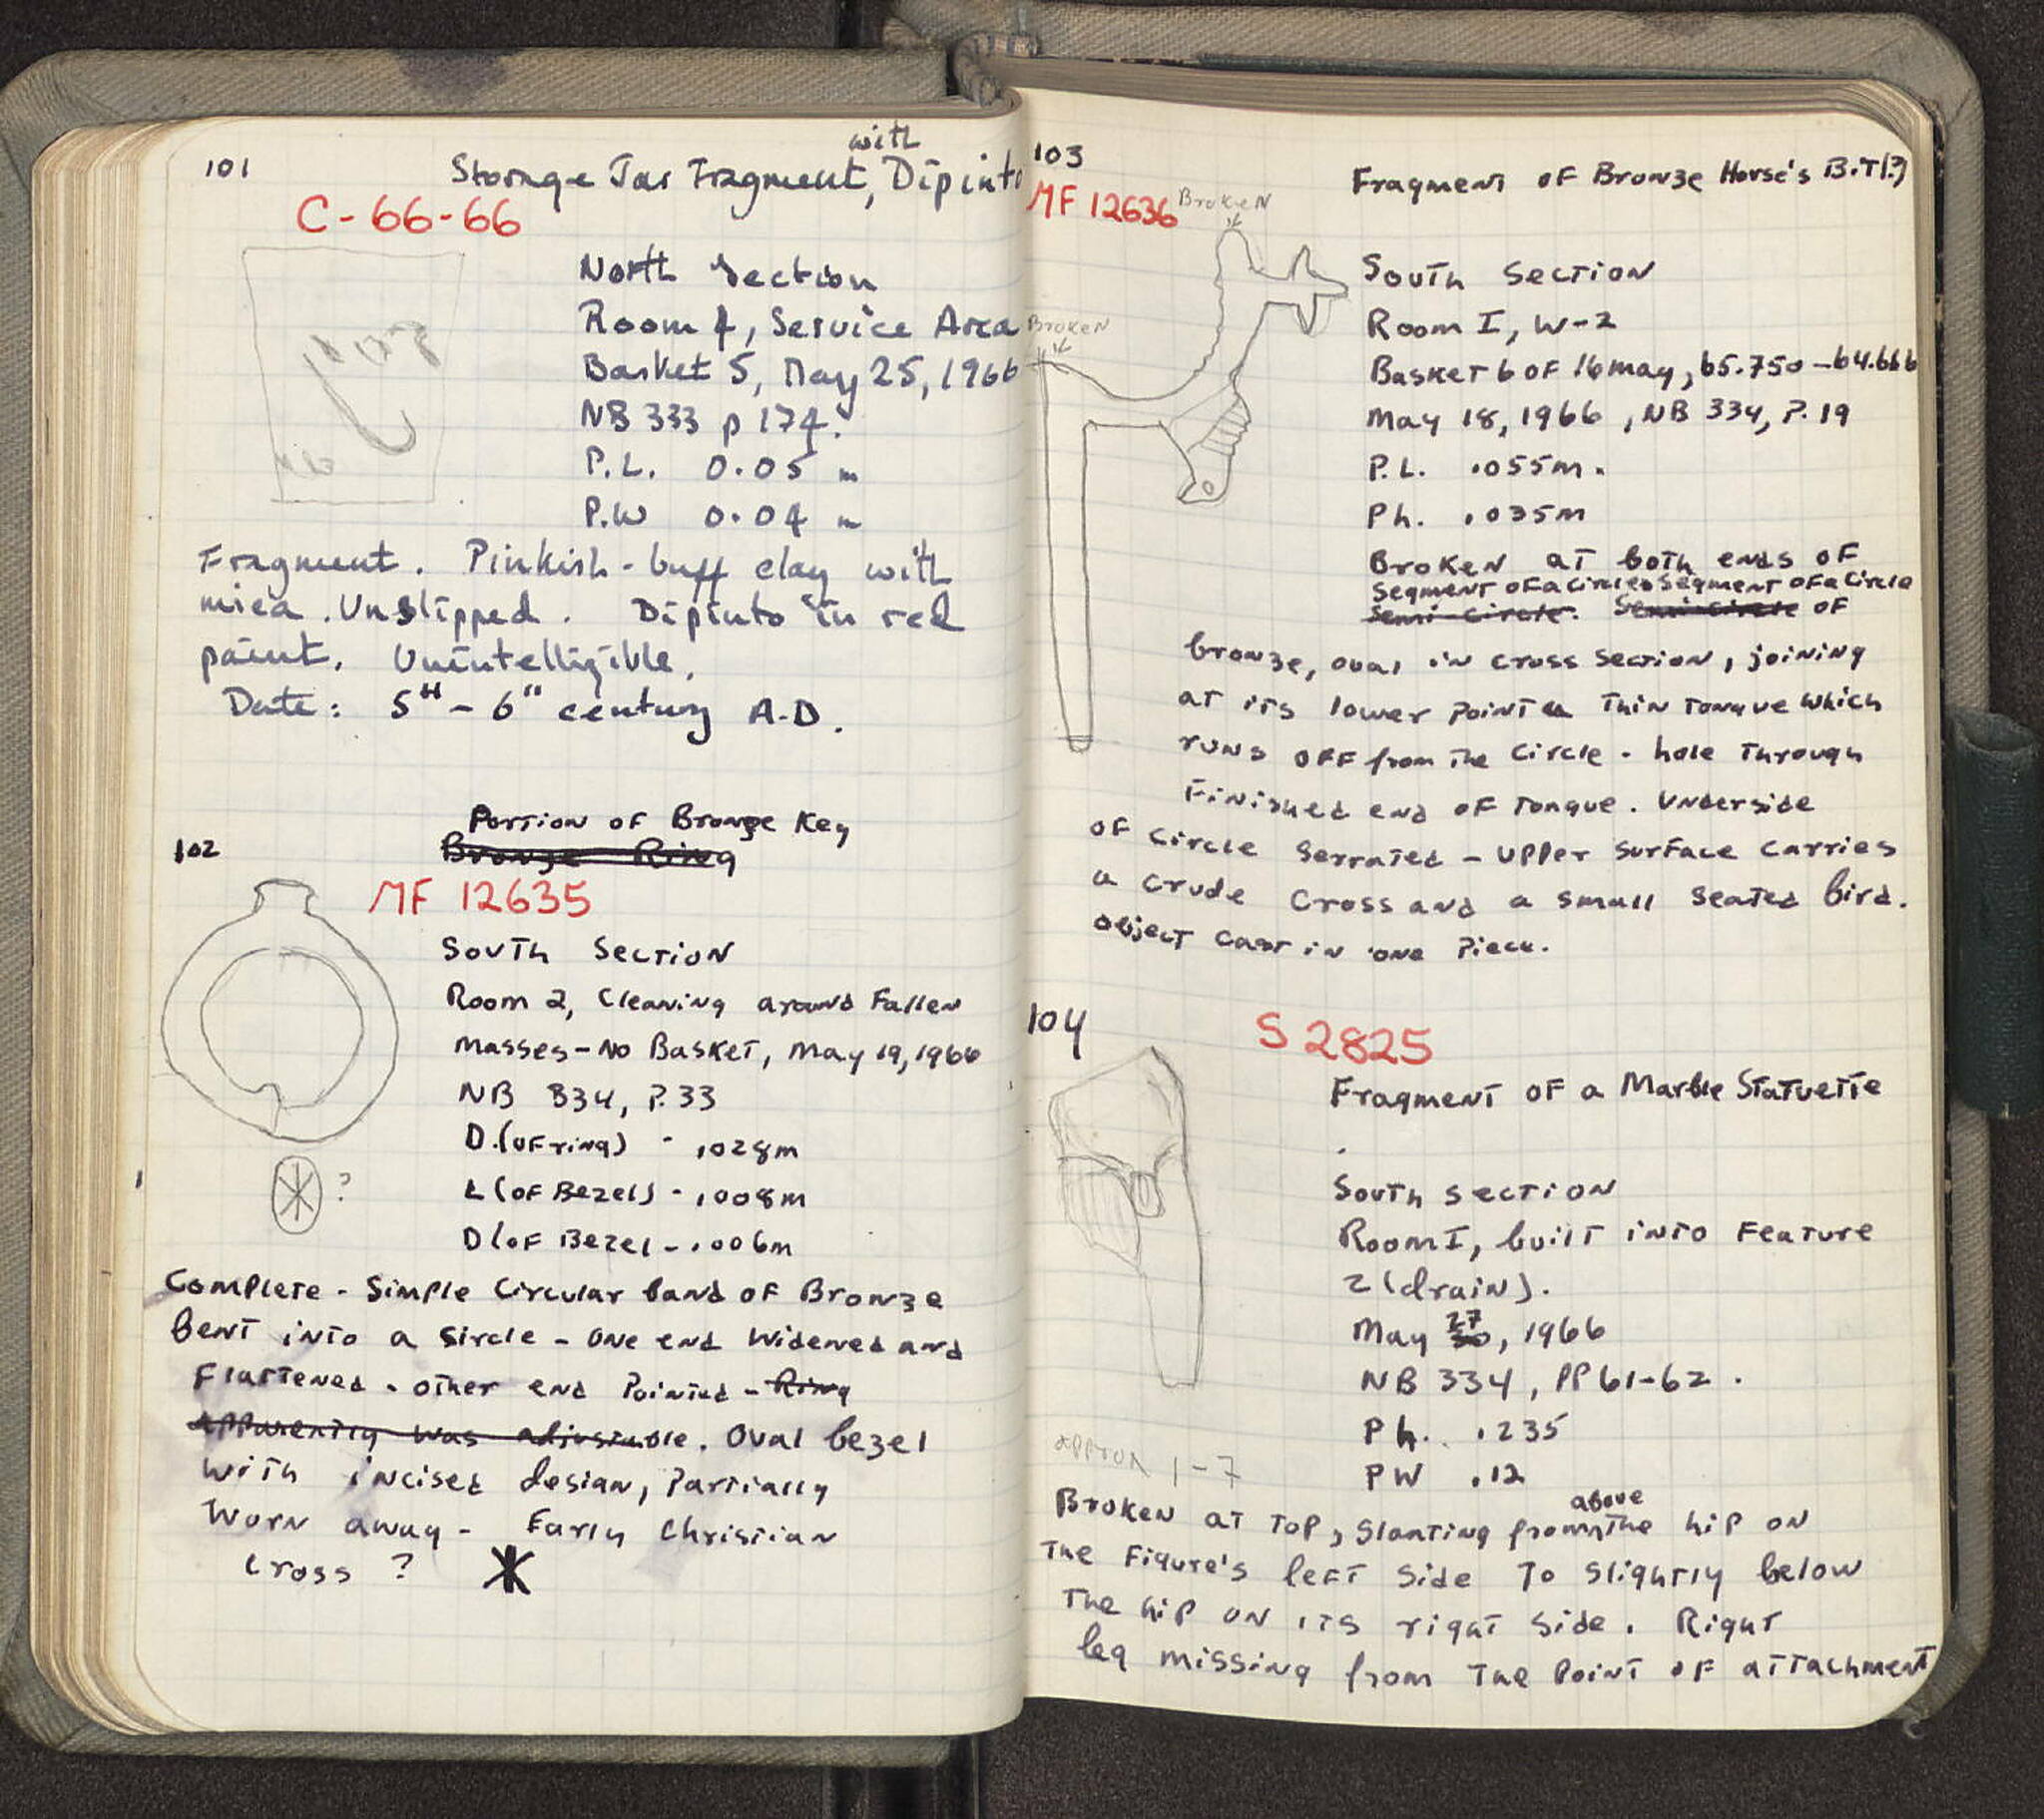 101
with
Storage Jar Fragment, Dipinto
C-66-66
North Section
Room 4, Service Area
Basket 5, May 25, 1966
NB 333 p 174.
P.L. 0.05 m
P.W 0.04 m
Fragment. Pinkish-buff clay with
mica. Unslipped. Dipinto in red
paint. Unintelligible.
Date: 5th - 6th century A.D.
Portion of Bronze Key
102 Bronze Ring
MF 12635
South Section
Room 2, Cleaning around Fallen
masses - No Basket, May 19, 1966
NB 334, P. 33
D. (of ring) - .028m
?
L (of Bezel) - .008m
D (of Bezel - .006m
Complete - Simple Circular band of Bronze
bent into a Sircle - one end widened and
Flattened - other end Pointed - Ring
apparently was adjustable. Oval bezel
with incised design, Partially
Worn away - Early Christian
Cross ?
103
Fragment of Bronze Horse's Bit(?)
MF 12636
Broken
South Section
Room I, W-2
Broken
Basket 6 of 16 may, 65.750 - 64.666
May 18, 1966, NB 334, P. 19
P.L. .055m.
Ph. .035m
Broken at both ends of
Segment of a Circle Segment of a Circle
Semi-circle. Semi-circle of
bronze, oval in cross section, joining
at its lower point a thin tongue which
runs off from the Circle - hole through
finished end of tongue. Underside
of circle serrated - upper surface carries
a crude cross and a small seated bird.
object cast in one piece.
104
S 2825
Fragment of a Marble Statuette
South section
Room I, built into Feature
2 (drain).
27
May 30, 1966
NB 334, PP 61-62.
Ph. .235
approx 1-7
PW .12
above
Broken at top, slanting from the hip on
the Figure's left side to slightly below
the hip on its right side. Right
leg missing from the point of attachment